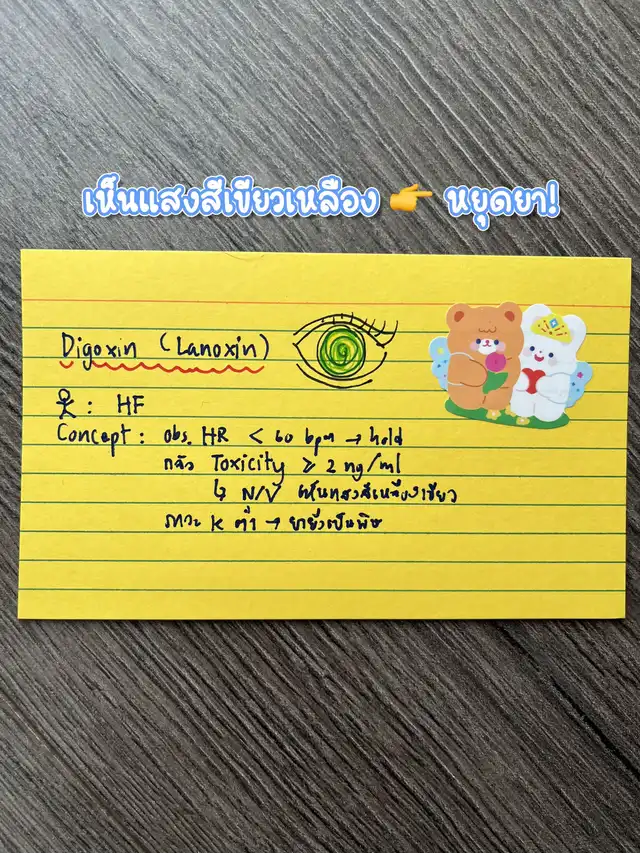 เห็นแสงสีเขียวเหลือง 👉 หยุดยา!
Digoxin (Lanoxin)
: HF
Concept : obs. HR < 60 bpm → hold
กลัว Toxicity ≥ 2 ng/ml
↳ N/V เห็นแสงสีเหลืองเขียว
ภาวะ K ต่ำ → ยายิ่งเป็นพิษ